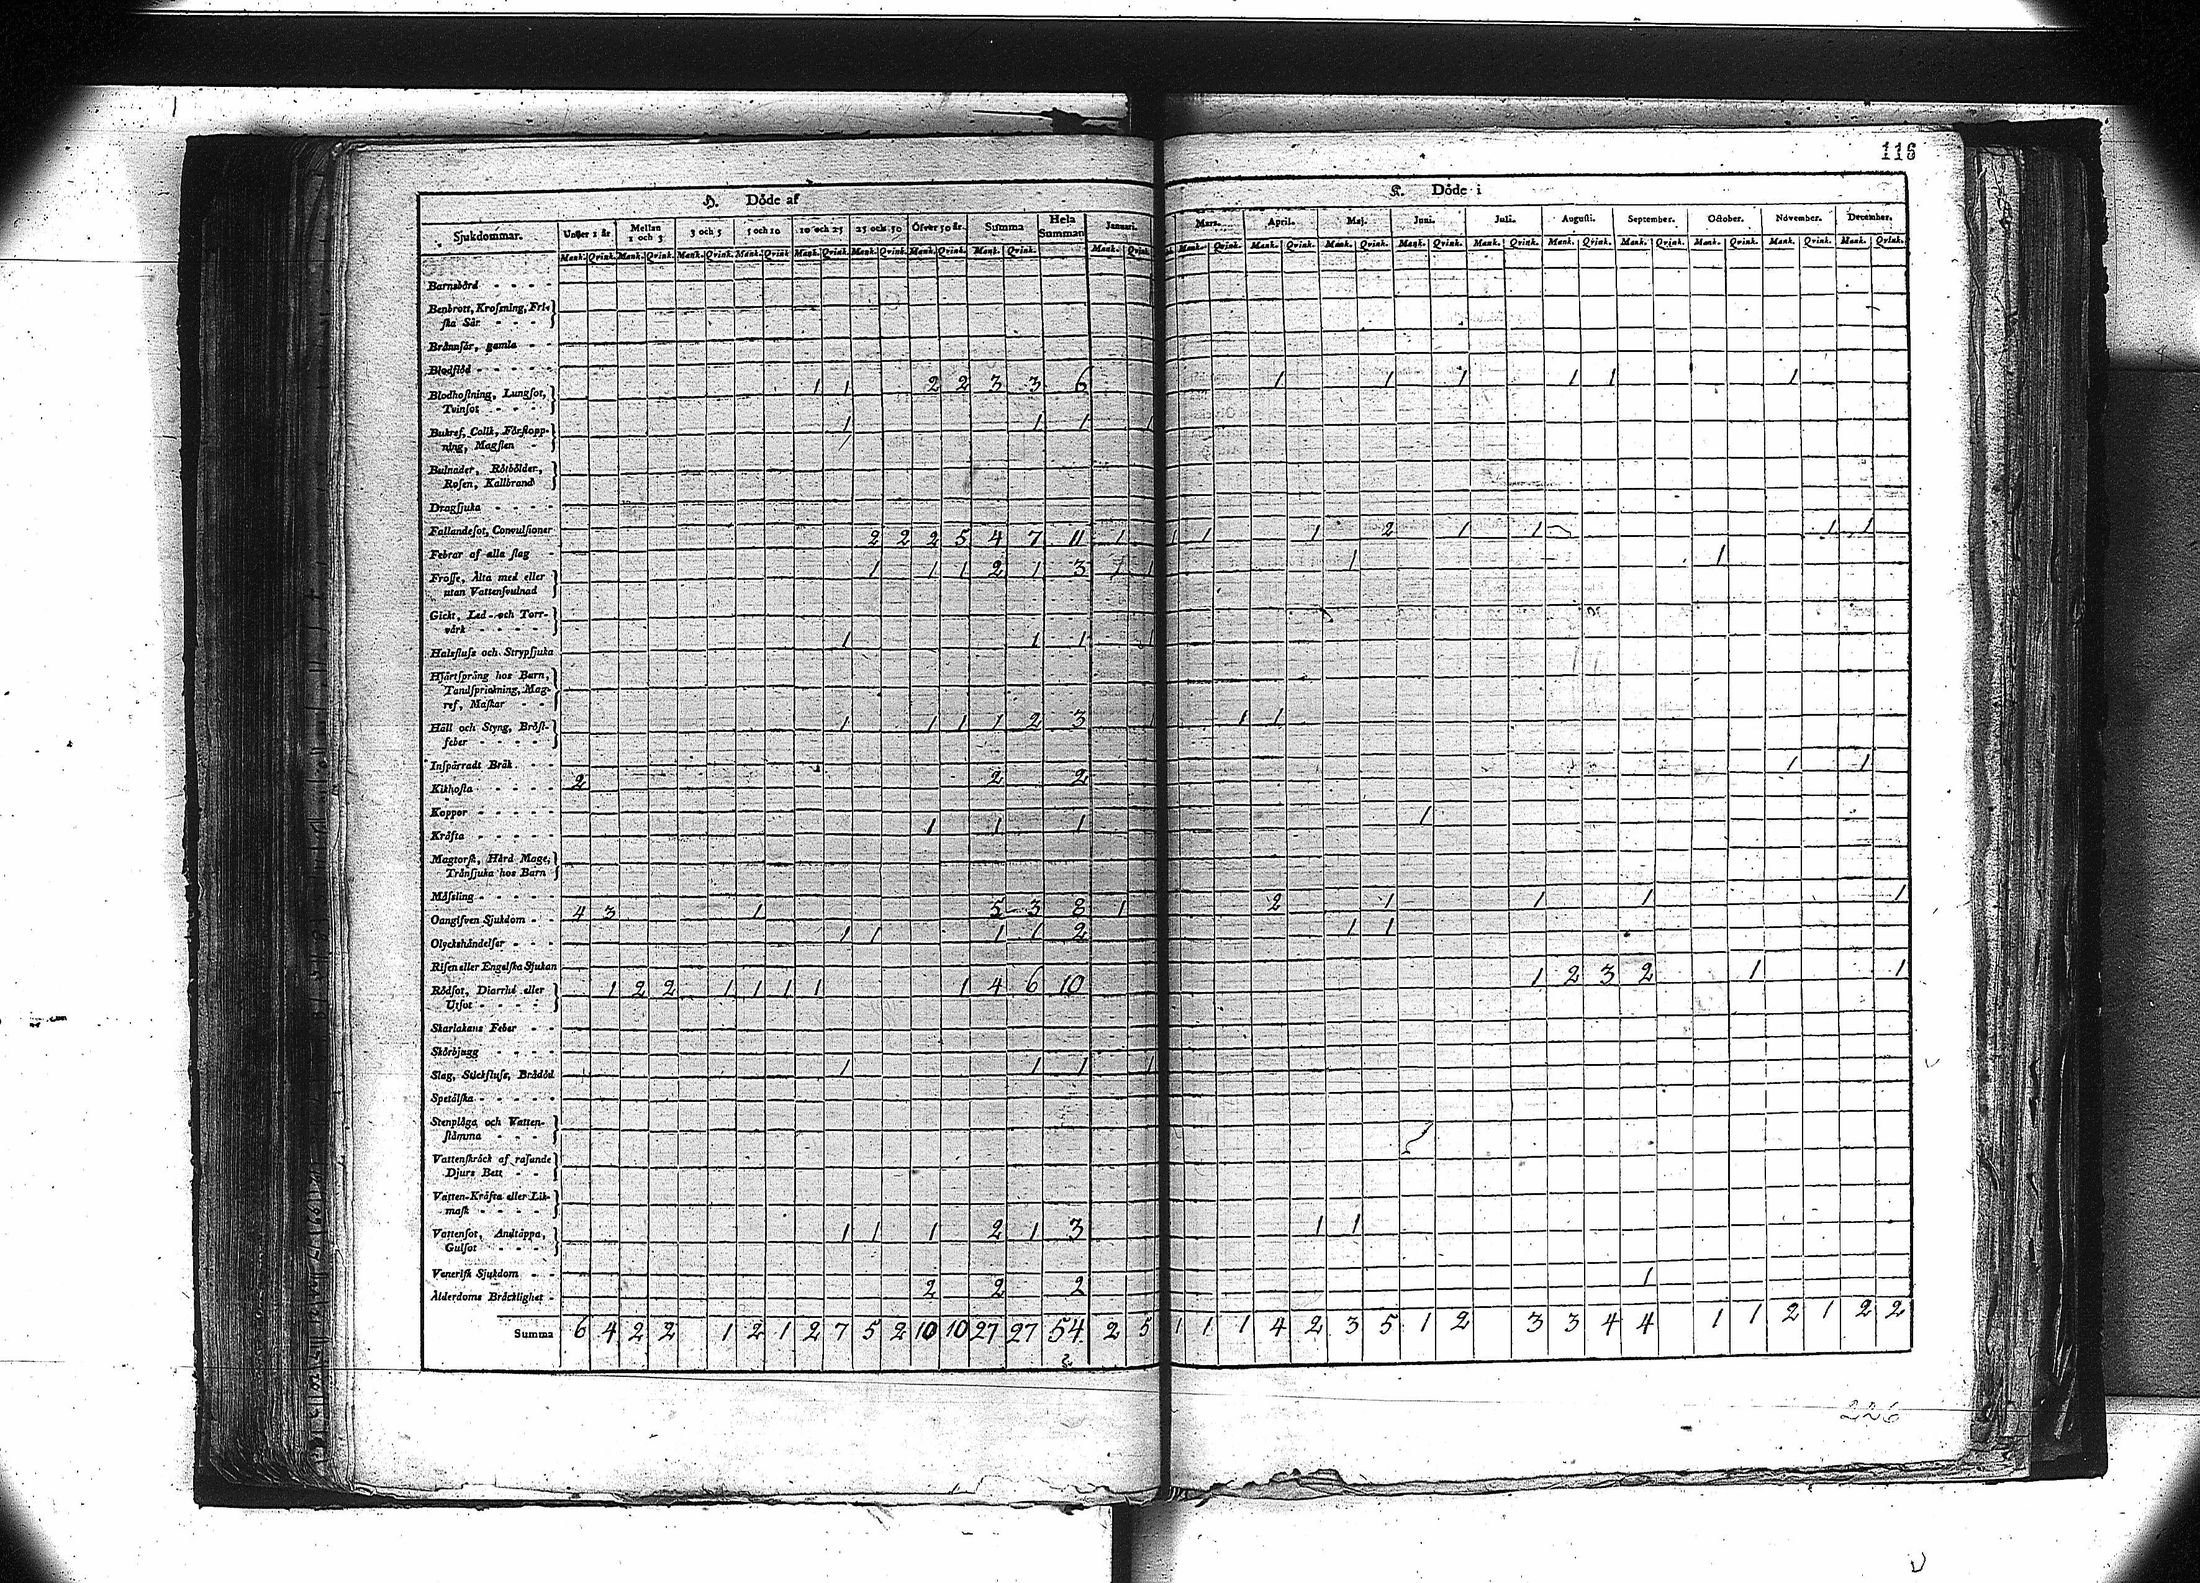 116
H. Döde af
K. Döde i
Sjukdommar. Under 1 år Mellan 1 och 3 3 och 5 5 och 10 10 och 25 25 och 50 Öfver 50 år. Summa Hela Summan Januari. Mars. April. Maj. Juni. Juli. Augusti. September. October. November. December.
Mank. Qvink. Mank. Qvink. Mank. Qvink. Mank. Qvink. Mank. Qvink. Mank. Qvink. Mank. Qvink. Mank. Qvink. Mank. Qvink. Mank. Qvink. Mank. Qvink. Mank. Qvink. Mank. Qvink. Mank. Qvink. Mank. Qvink. Mank. Qvink. Mank. Qvink. Mank. Qvink. Mank. Qvink.
Barnsbörd
Benbrott, Krossning, Fri-
ska Sår
Brännsår, gamla
Blodflöd
1 1 2 2 3 3 6 1 1 1 1 1 1
Blodhostning, Lungsot,
Tvinsot
1 1 1 1
Bukref, Colik, Förstopp-
ning, Magsten
Bulnader, Rötbölder,
Rosen, Kallbrand
Dragsjuka
Fallandesot, Convulsioner
2 2 2 5 4 7 11 1 1 1 1 2 1 1 1 1
Febrar af alla slag
1 1 1 2 1 3 1 1 1 1
Frosse, Älta med eller
utan Vattensvulnad
Gickt, Led- och Torr-
värk
1 1 1 1
Halsfluss och Strypsjuka
Hjärtsprång hos Barn,
Tandsprickning, Mag-
ref, Maskar
1 1 1 1 2 3 1 1 1
Håll och Styng, Bröst-
feber
Inspärradt Bråk
2 2 2 1 1
Kikhosta
Koppor
1 1 1 1
Kräfta
Magtorsk, Hård Mage,
Trånsjuka hos Barn
Mässling
4 3 1 5 3 8 1 2 1 1 1 1
Oangifven Sjukdom
1 1 1 1 2 1 1
Olyckshändelser
Risen eller Engelska Sjukan
1 2 2 1 1 1 1 1 4 6 10 1 2 3 2 1 1
Rödsot, Diarrhé eller
Utsot
Skarlakans Feber
Skörbjugg
1 1 1 1
Slag, Stickfluss, Bråddöd
Spetälska
Stenplåga och Vatten-
stämma
Vattenskräck af rasande
Djurs Bett
Vatten-Kräfta eller Lik-
mask
1 1 1 2 1 3 1 1
Vattensot, Andtäppa,
Gulsot
Venerisk Sjukdom
2 2 2 1
Ålderdoms Bräcklighet
Summa 6 4 2 2 1 2 1 2 7 5 2 10 10 27 27 54 2 5 1 1 1 4 2 3 5 1 2 3 3 4 4 1 1 2 1 2 2
226